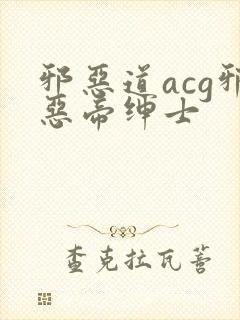 邪惡道acg邪
惡帝绅士
查克拉瓦蒼